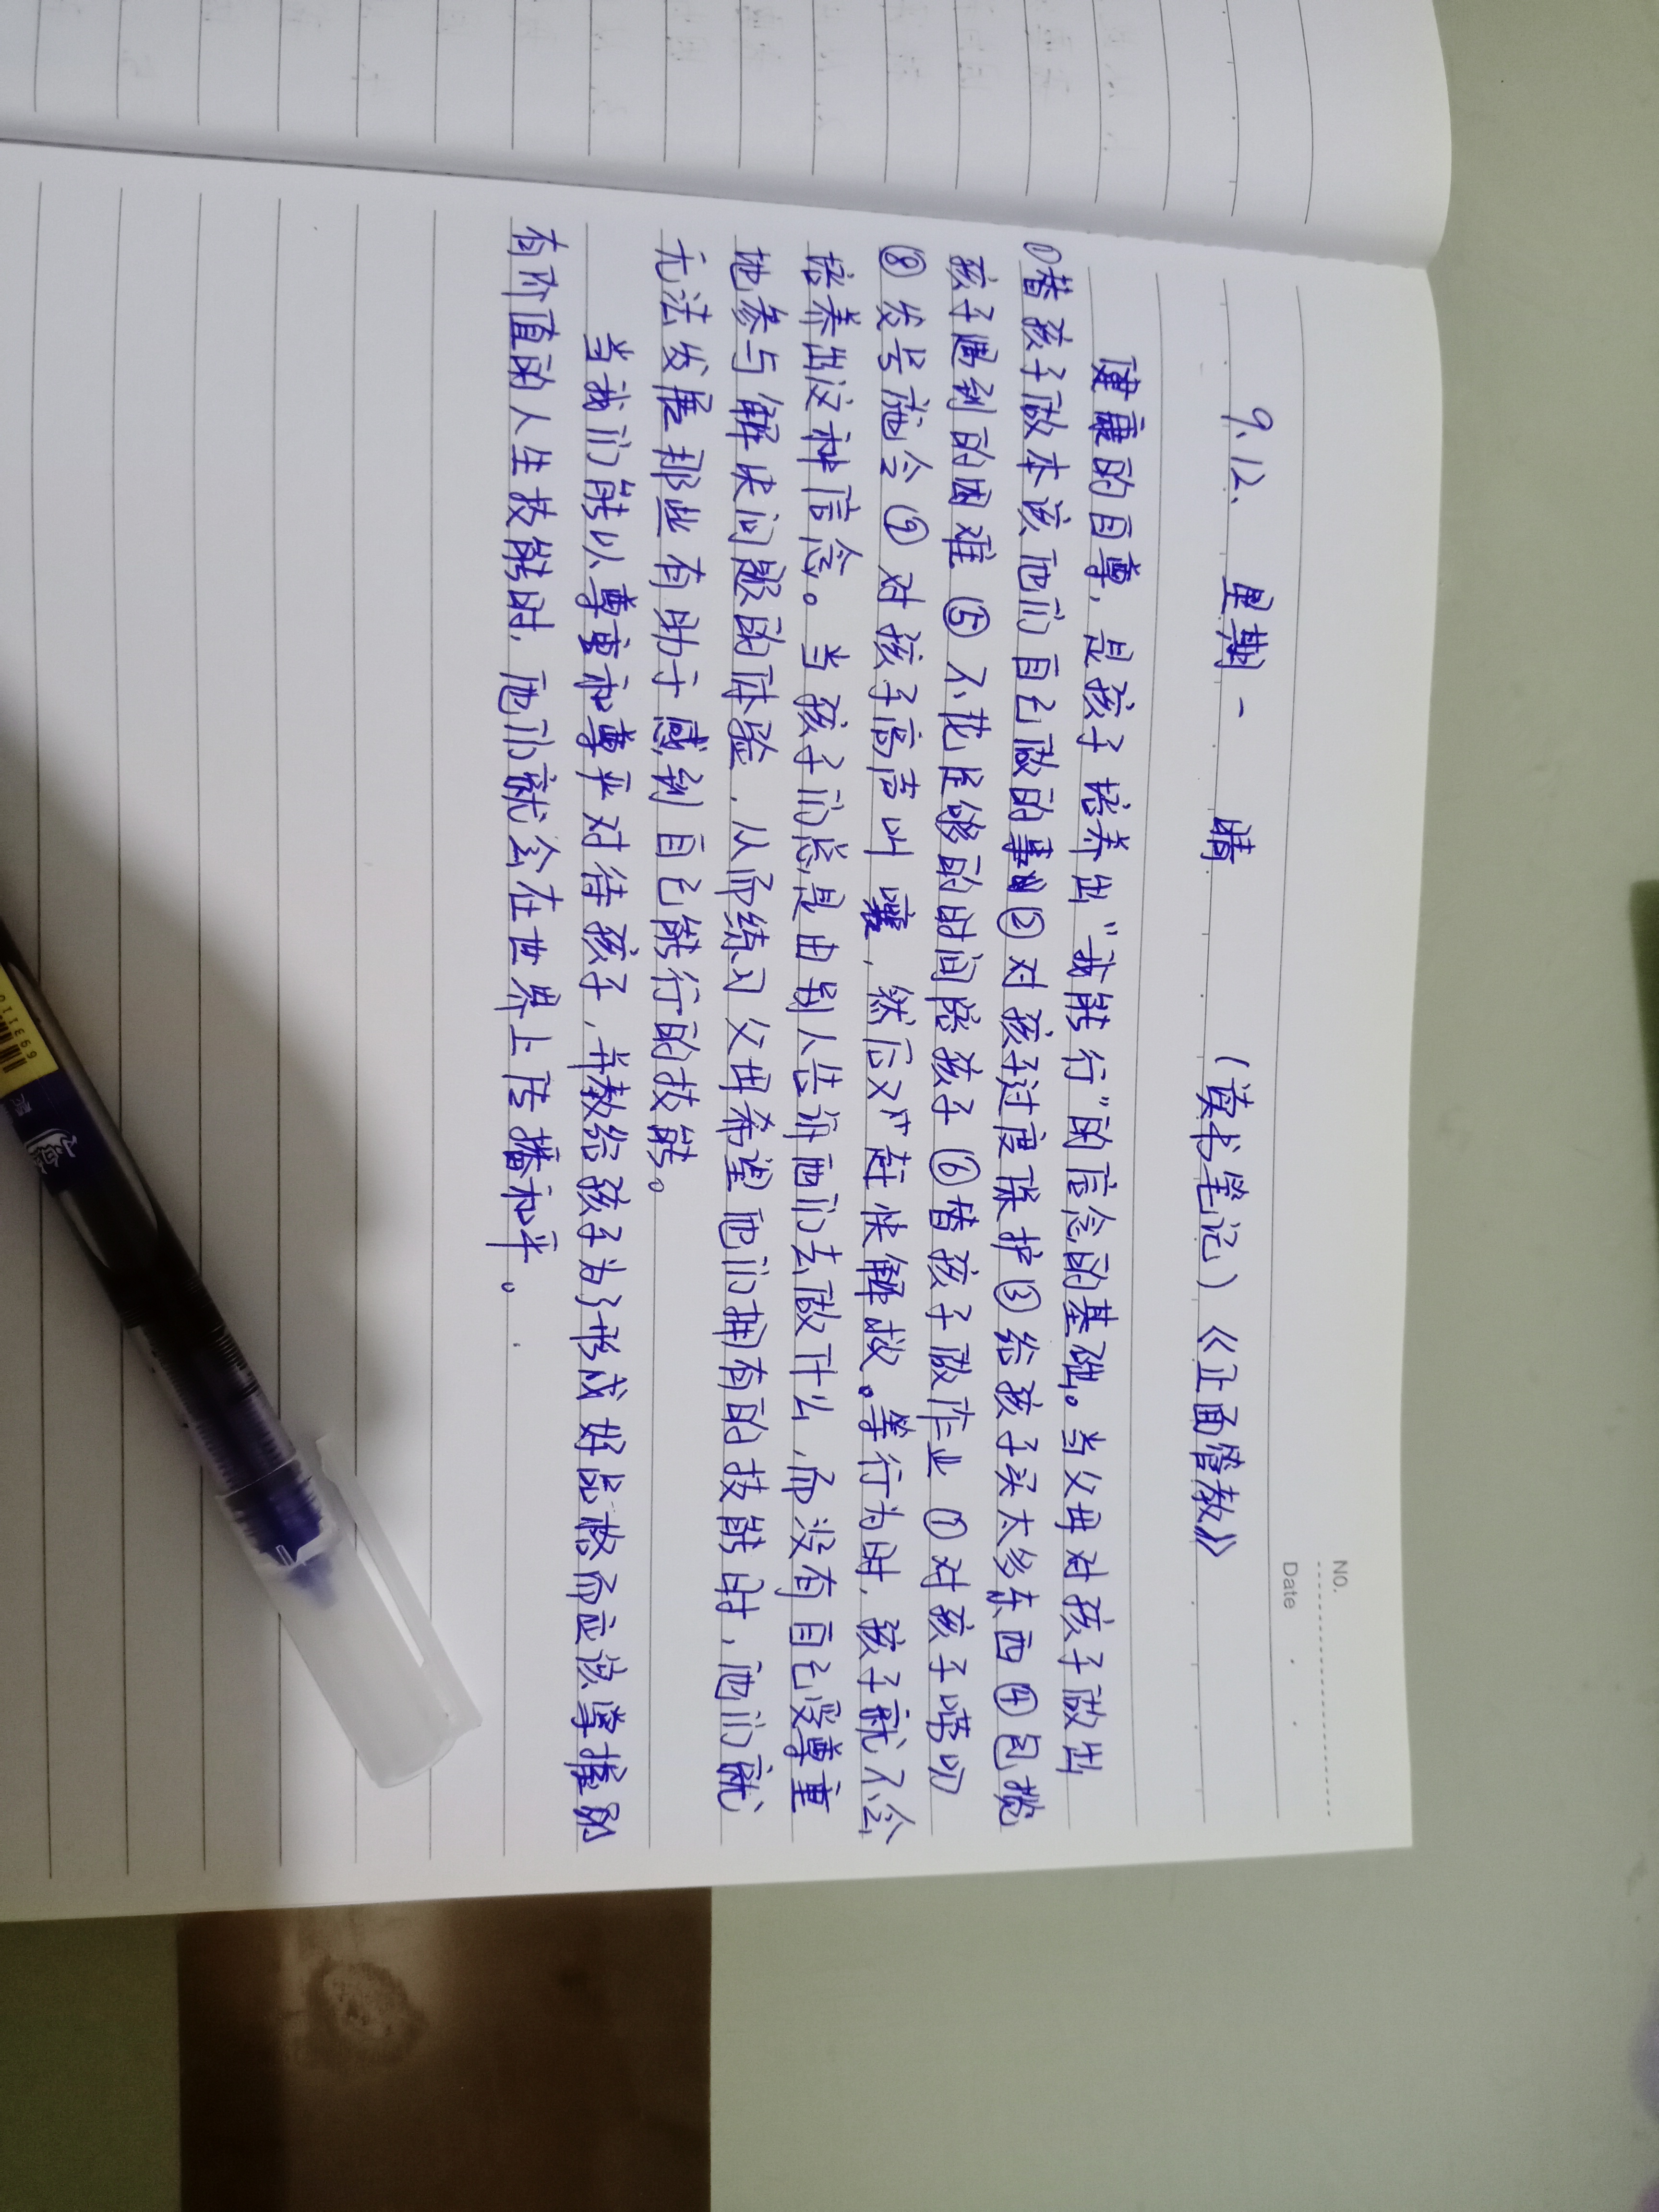 NO.
Date
9.12、 星期一 晴 (读书笔记)《正面管教》
健康的自尊,是孩子培养出“我能行”的信念的基础。当父母对孩子做出
①替孩子做本该他们自己做的事②对孩子过度保护③给孩子买太多东西④包揽
孩子遇到的困难⑤不花足够的时间陪孩子⑥替孩子做作业⑦对孩子唠叨
⑧发号施令⑨对孩子高声叫嚷,然后又赶快解救。等行为时,孩子就不会
培养出这种信念。当孩子们总是由别人告诉他们去做什么,而没有自己受尊重
地参与解决问题的体验,从而练习父母希望他们拥有的技能时,他们就
无法发展那些有助于感到自己能行的技能。
当我们能以尊重和尊严对待孩子,并教给孩子为了形成好品格而应该掌握的
有价值的人生技能时,他们就会在世界上传播和平。